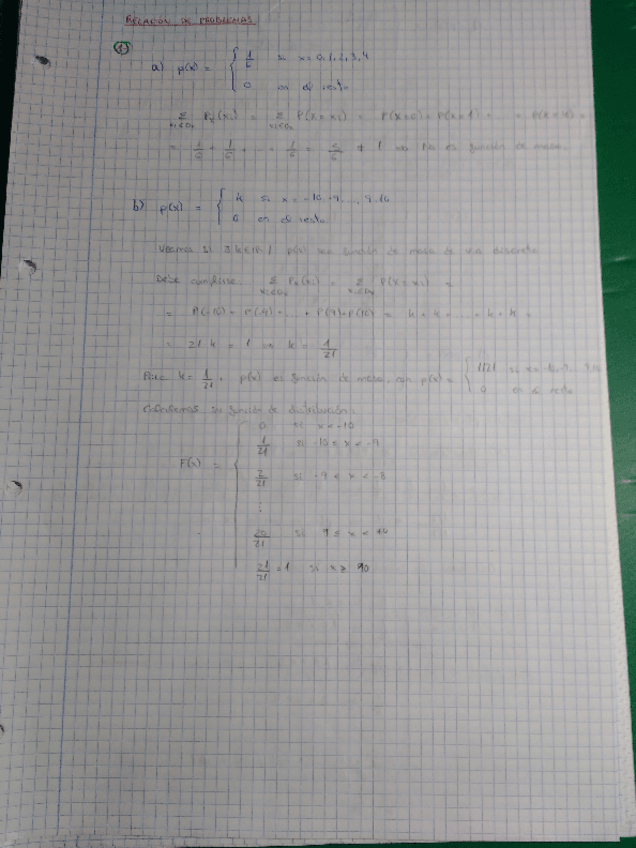 RELACIÓN DE PROBLEMAS
1.
a) p(x) = { 1/6 si x = 0, 1, 2, 3, 4
0 en el resto
Σ Px(xi) = Σ P(X = xi) = P(X=0) + P(X=1) + ... + P(X=4) =
= 1/6 + 1/6 + ... 1/6 = 5/6 ≠ 1 no es función de masa.
b) p(x) = { k si x = -10, -9, ..., 9, 10
0 en el resto
Veamos si ∃ k∈ℝ / p(x) sea función de masa de v.a. discreta
Debe cumplirse: Σ Px(xi) = Σ P(X = xi) =
= P(-10) + P(-9) + ... + P(9) + P(10) = k + k + ... + k + k =
= 21 k = 1 k = 1/21
Para k = 1/21, p(x) es función de masa, con p(x) = { 1/21 si x = -10, -9, ... 9, 10
0 en el resto
Calculemos su función de distribución:
0 si x < -10
1/21 si -10 ≤ x < -9
F(x) = { 2/21 si -9 ≤ x < -8
⋮
20/21 si 9 ≤ x < 10
21/21 = 1 si x ≥ 10